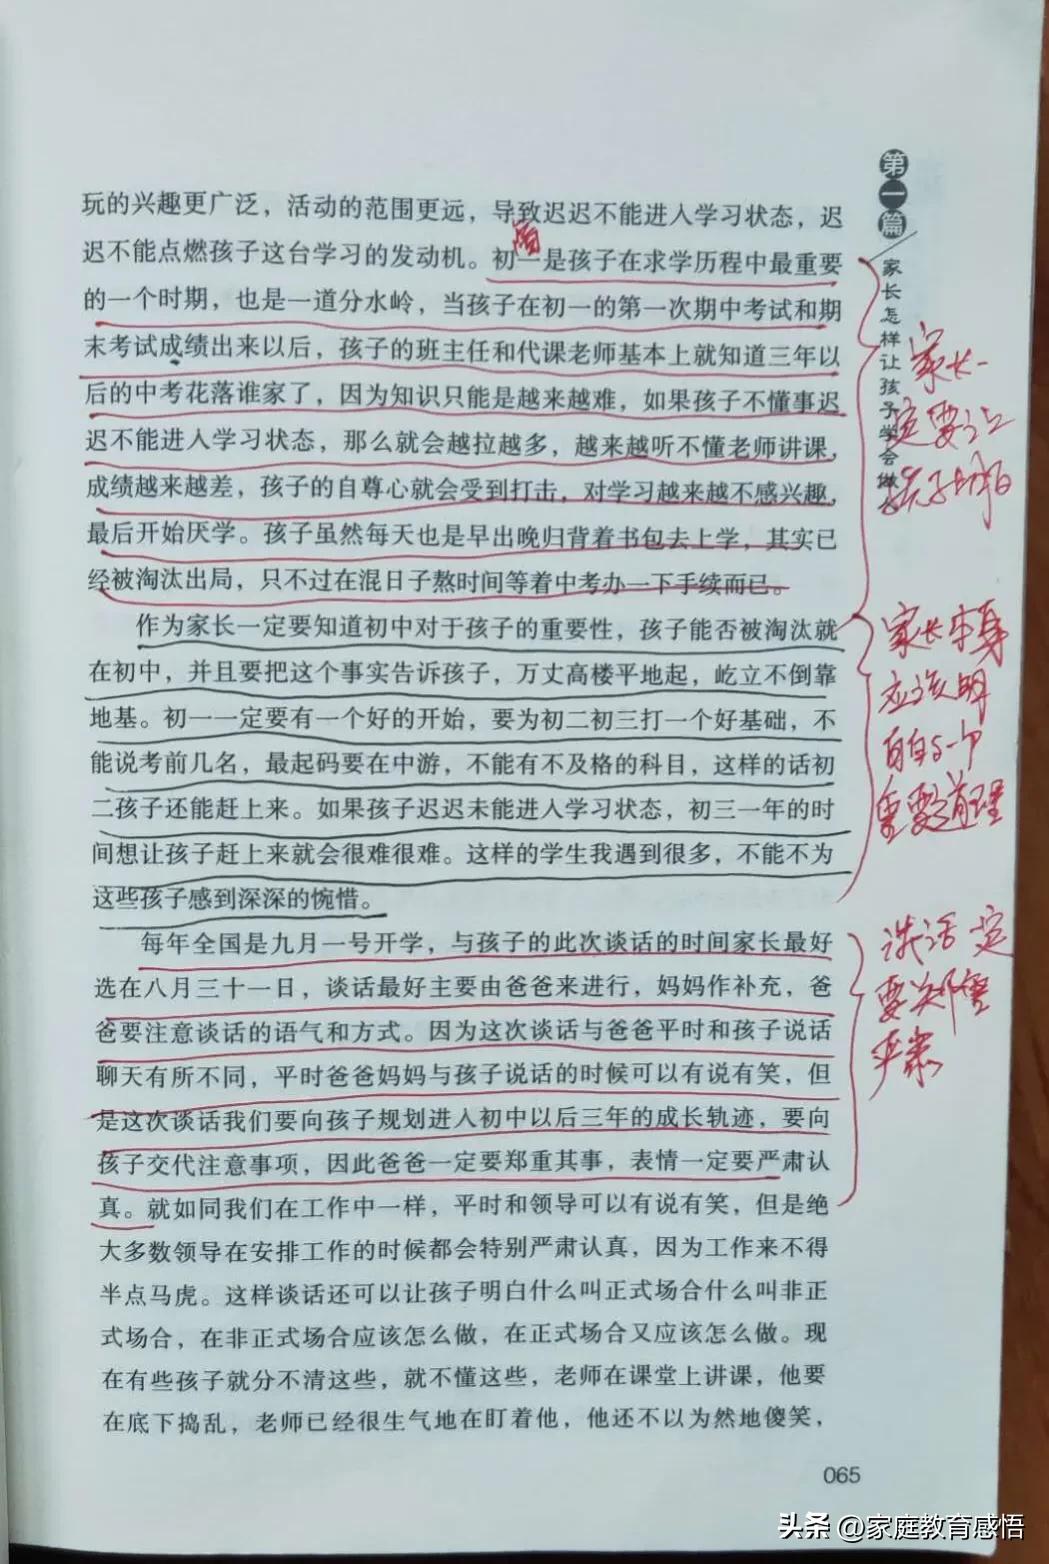 第一篇
家长怎样让孩子学会做
玩的兴趣更广泛，活动的范围更远，导致迟迟不能进入学习状态，迟
迟不能点燃孩子这台学习的发动机。初一是孩子在求学历程中最重要
的一个时期，也是一道分水岭，当孩子在初一的第一次期中考试和期
末考试成绩出来以后，孩子的班主任和代课老师基本上就知道三年以
后的中考花落谁家了，因为知识只能是越来越难，如果孩子不懂事迟
迟不能进入学习状态，那么就会越拉越多，越来越听不懂老师讲课，
成绩越来越差，孩子的自尊心就会受到打击，对学习越来越不感兴趣，
最后开始厌学。孩子虽然每天也是早出晚归背着书包去上学，其实已
经被淘汰出局，只不过在混日子熬时间等着中考办一下手续而已。
作为家长一定要知道初中对于孩子的重要性，孩子能否被淘汰就
在初中，并且要把这个事实告诉孩子，万丈高楼平地起，屹立不倒靠
地基。初一一定要有一个好的开始，要为初二初三打一个好基础，不
能说考前几名，最起码要在中游，不能有不及格的科目，这样的话初
二孩子还能赶上来。如果孩子迟迟未能进入学习状态，初三一年的时
间想让孩子赶上来就会很难很难。这样的学生我遇到很多，不能不为
这些孩子感到深深的惋惜。
每年全国是九月一号开学，与孩子的此次谈话的时间家长最好
选在八月三十一日，谈话最好主要由爸爸来进行，妈妈作补充，爸
爸要注意谈话的语气和方式。因为这次谈话与爸爸平时和孩子说话
聊天有所不同，平时爸爸妈妈与孩子说话的时候可以有说有笑，但
是这次谈话我们要向孩子规划进入初中以后三年的成长轨迹，要向
孩子交代注意事项，因此爸爸一定要郑重其事，表情一定要严肃认
真。就如同我们在工作中一样，平时和领导可以有说有笑，但是绝
大多数领导在安排工作的时候都会特别严肃认真，因为工作来不得
半点马虎。这样谈话还可以让孩子明白什么叫正式场合什么叫非正
式场合，在非正式场合应该怎么做，在正式场合又应该怎么做。现
在有些孩子就分不清这些，就不懂这些，老师在课堂上讲课，他要
在底下捣乱，老师已经很生气地在盯着他，他还不以为然地傻笑，
家长一
定要让
孩子明白
家长本身
应该明
白这一个
重要道理
谈话一定
要郑重
严肃
065
头条 @家庭教育感悟